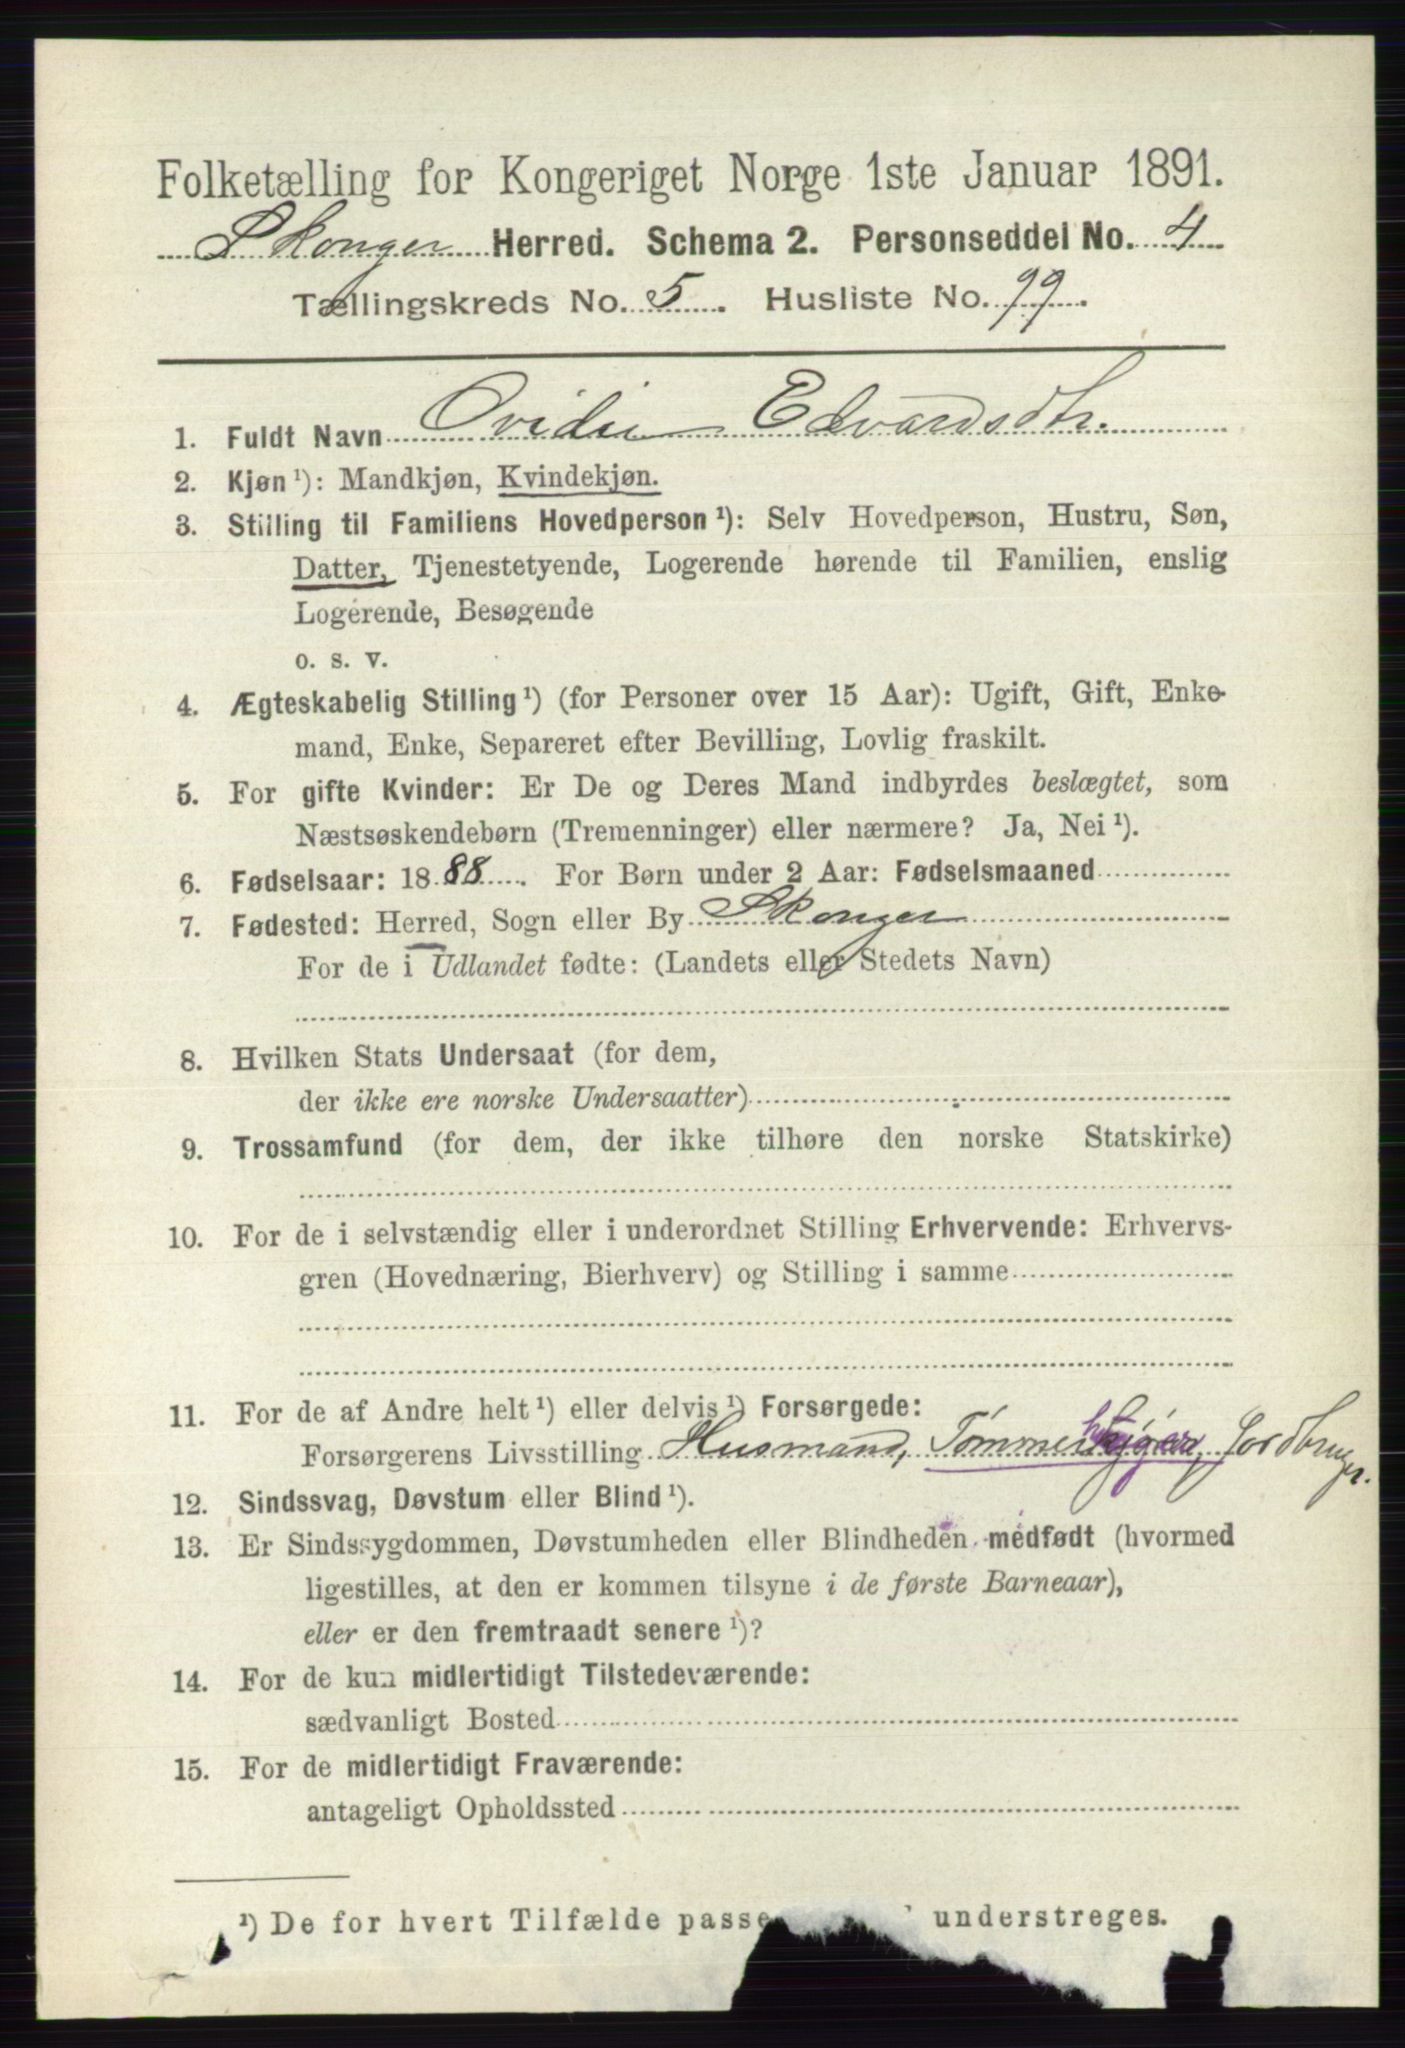 Folketælling for Kongeriget Norge 1ste Januar 1891.
Skonger Herred. Schema 2. Personseddel No. 4
Tællingskreds No. 5. Husliste No. 99.
1. Fuldt Navn Ovidie Edvardsdtr.
2. Kjøn ¹): Mandkjøn, Kvindekjøn.
3. Stilling til Familiens Hovedperson ¹): Selv Hovedperson, Hustru, Søn,
Datter, Tjenestetyende, Logerende hørende til Familien, enslig
Logerende, Besøgende
o. s. v.
4. Ægteskabelig Stilling ¹) (for Personer over 15 Aar): Ugift, Gift, Enke-
mand, Enke, Separeret efter Bevilling, Lovlig fraskilt.
5. For gifte Kvinder: Er De og Deres Mand indbyrdes beslægtet, som
Næstsøskendebørn (Tremenninger) eller nærmere? Ja, Nei ¹).
6. Fødselsaar: 1888. For Børn under 2 Aar: Fødselsmaaned
7. Fødested: Herred, Sogn eller By Skonger
For de i Udlandet fødte: (Landets eller Stedets Navn)
8. Hvilken Stats Undersaat (for dem,
der ikke ere norske Undersaatter)
9. Trossamfund (for dem, der ikke tilhøre den norske Statskirke)
10. For de i selvstændig eller i underordnet Stilling Erhvervende: Erhvervs-
gren (Hovednæring, Bierhverv) og Stilling i samme
11. For de af Andre helt ¹) eller delvis ¹) Forsørgede:
Forsørgerens Livsstilling Husmand, Tømmerkjører, Jordbruger.
12. Sindssvag, Døvstum eller Blind ¹).
13. Er Sindssygdommen, Døvstumheden eller Blindheden medfødt (hvormed
ligestilles, at den er kommen tilsyne i de første Barneaar),
eller er den fremtraadt senere ¹)?
14. For de kun midlertidigt Tilstedeværende:
sædvanligt Bosted
15. For de midlertidigt Fraværende:
antageligt Opholdssted
¹) De for hvert Tilfælde passe understreges.